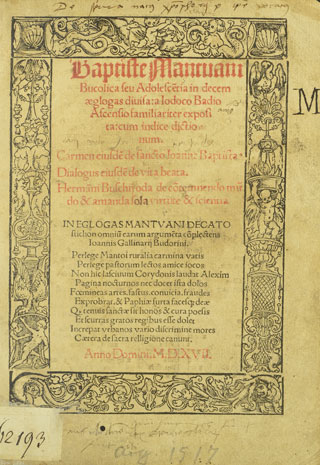 Baptiste Mantuani
Bucolica seu Adolescētia in decem
æglogas diuisa: ta Iodoco Badio
Ascensio familiariter exposi
ta: cum indice dictio
num.
Carmen eiusdē de sancto Ioanne Baptista
Dialogus eiusdē de vita beata.
Hermāni Buschij
do & amanda sola virtute & scientia
IN EGLOGAS MANTVANI DECATO
stichon omniū earum argumēta cōplectens
Ioannis Gallinarij Budorini.
Perlege Mantoi ruralia carmina vatis
Perlege pastorum lectos amice iocos
Non hic lasciuum Corydonis laudat Alexim
Pagina nocturnos nec docet ista dolos
Fœmineas artes, fastus, conuicia, fraudes
Exprobrat, & Paphiæ furta
sanctæ sit honos & cura poesis
Et scurras gratos regibus esse dolet
Increpat vrbanos vario discrimine mores
Cætera de sacra religione canunt.
Anno Domini. M.D.XVII.
M
62193
1517